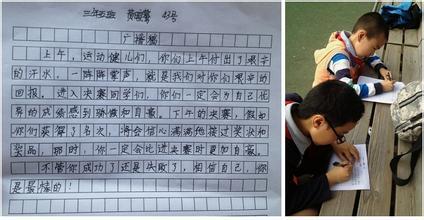 三年五班 42号
广播稿
上午，运动健儿们，你们上午付出了艰辛
的汗水，一阵阵掌声，就是我们对你艰辛的
回报。进入决赛同学们，你们一定会为自己优
异的成绩感到骄傲和自豪。下午的决赛，假如
你们获得了名次，将会信心满满地接过奖状和
奖品，那时，你一定会比进决赛时更加自豪。
不管你成功了还是失败了，相信自己，你
是最棒的！